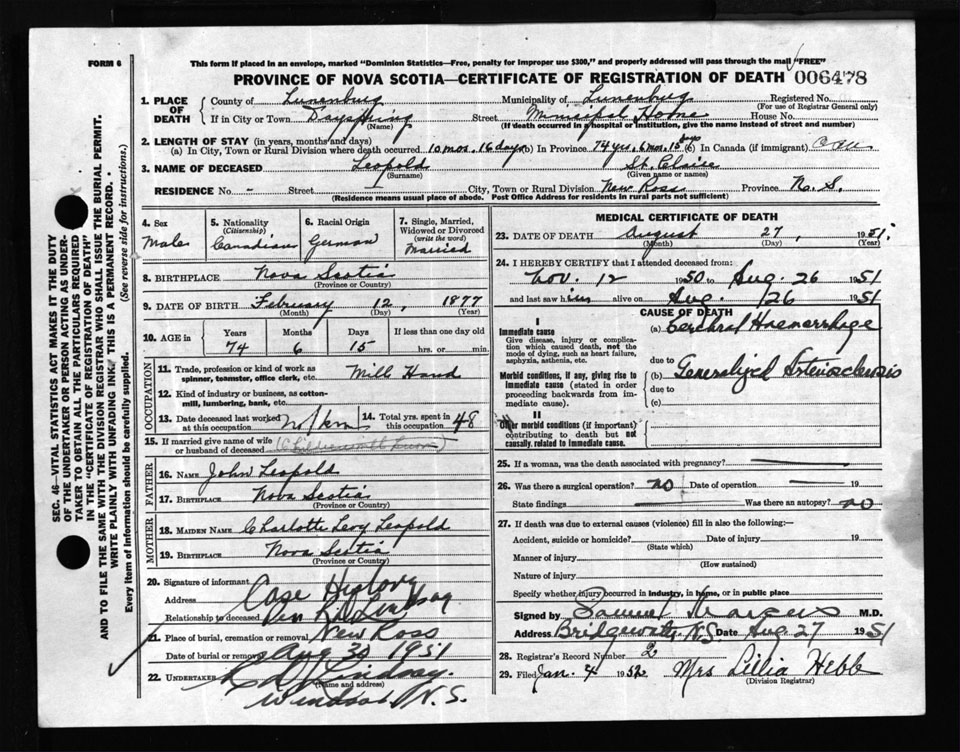 FORM 6
This form if placed in an envelope, marked "Dominion Statistics—Free, penalty for improper use $300," and properly addressed will pass through the mail "FREE"
PROVINCE OF NOVA SCOTIA—CERTIFICATE OF REGISTRATION OF DEATH 006478
1. PLACE OF DEATH { County of Lunenburg Municipality of Lunenburg Registered No.
(For use of Registrar General only)
If in City or Town Dayspring Street Municipal Home House No.
(Name) (If death occurred in a hospital or institution, give the name instead of street and number)
2. LENGTH OF STAY (in years, months and days)
(a) In City, Town or Rural Division where death occurred 10 mos. 16 days (b) In Province 74 yrs. 6 mos. 15 days (c) In Canada (if immigrant) Can
3. NAME OF DECEASED Leopold St. Claire
(Surname) (Given name or names)
RESIDENCE No. - Street City, Town or Rural Division New Ross Province N. S.
(Residence means usual place of abode. Post Office Address for residents in rural parts not sufficient)
4. Sex Male
5. Nationality (Citizenship) Canadian
6. Racial Origin German
7. Single, Married, Widowed or Divorced (write the word) Married
8. BIRTHPLACE Nova Scotia
(Province or Country)
9. DATE OF BIRTH February 12, 1877
(Month) (Day) (Year)
10. AGE in Years Months Days If less than one day old
74 6 15 hrs. or min.
OCCUPATION
11. Trade, profession or kind of work as spinner, teamster, office clerk, etc. Mill Hand
12. Kind of industry or business, as cotton-mill, lumbering, bank, etc.
13. Date deceased last worked at this occupation not km
14. Total yrs. spent in this occupation 48
15. If married give name of wife or husband of deceased
FATHER
16. NAME John Leopold
17. BIRTHPLACE Nova Scotia
(Province or Country)
MOTHER
18. MAIDEN NAME Charlotte Levy Leopold
19. BIRTHPLACE Nova Scotia
(Province or Country)
20. Signature of informant Case History
Address
Relationship to deceased
21. Place of burial, cremation or removal New Ross
Date of burial or removal Aug 30 1951
22. UNDERTAKER Lindsay.
(Name and address)
Windsor N. S.
MEDICAL CERTIFICATE OF DEATH
23. DATE OF DEATH August 27, 1951
(Month) (Day) (Year)
24. I HEREBY CERTIFY that I attended deceased from:
Nov. 12 1950 to Aug. 26 1951
and last saw him alive on Aug. 26 1951
CAUSE OF DEATH
I
Immediate cause (a) Cerebral Haemorrhage
Give disease, injury or complication which caused death, not the mode of dying, such as heart failure, asphyxia, asthenia, etc.
due to
Morbid conditions, if any, giving rise to immediate cause (stated in order proceeding backwards from immediate cause).
(b) Generalized Arteriosclerosis
due to
(c)
II
Other morbid conditions (if important) contributing to death but not causally related to immediate cause.
25. If a woman, was the death associated with pregnancy?
26. Was there a surgical operation? no Date of operation 19
State findings Was there an autopsy? no
27. If death was due to external causes (violence) fill in also the following:—
Accident, suicide or homicide? Date of injury 19
(State which)
Manner of injury
(How sustained)
Nature of injury
Specify whether injury occurred in industry, in home, or in public place
Signed by Samuel Marcus M.D.
Address Bridgewater, N.S. Date Aug. 27 1951
28. Registrar's Record Number 2
29. Filed Jan. 4 1952 Mrs Lillia Hebb
(Division Registrar)
SEC. 46—VITAL STATISTICS ACT MAKES IT THE DUTY
OF THE UNDERTAKER OR PERSON ACTING AS UNDER-
TAKER TO OBTAIN ALL THE PARTICULARS REQUIRED
IN THE "CERTIFICATE OF REGISTRATION OF DEATH"
AND TO FILE THE SAME WITH THE DIVISION REGISTRAR WHO SHALL ISSUE THE BURIAL PERMIT.
WRITE PLAINLY WITH UNFADING INK. THIS IS A PERMANENT RECORD.
Every item of information should be carefully supplied. (See reverse side for instructions.)